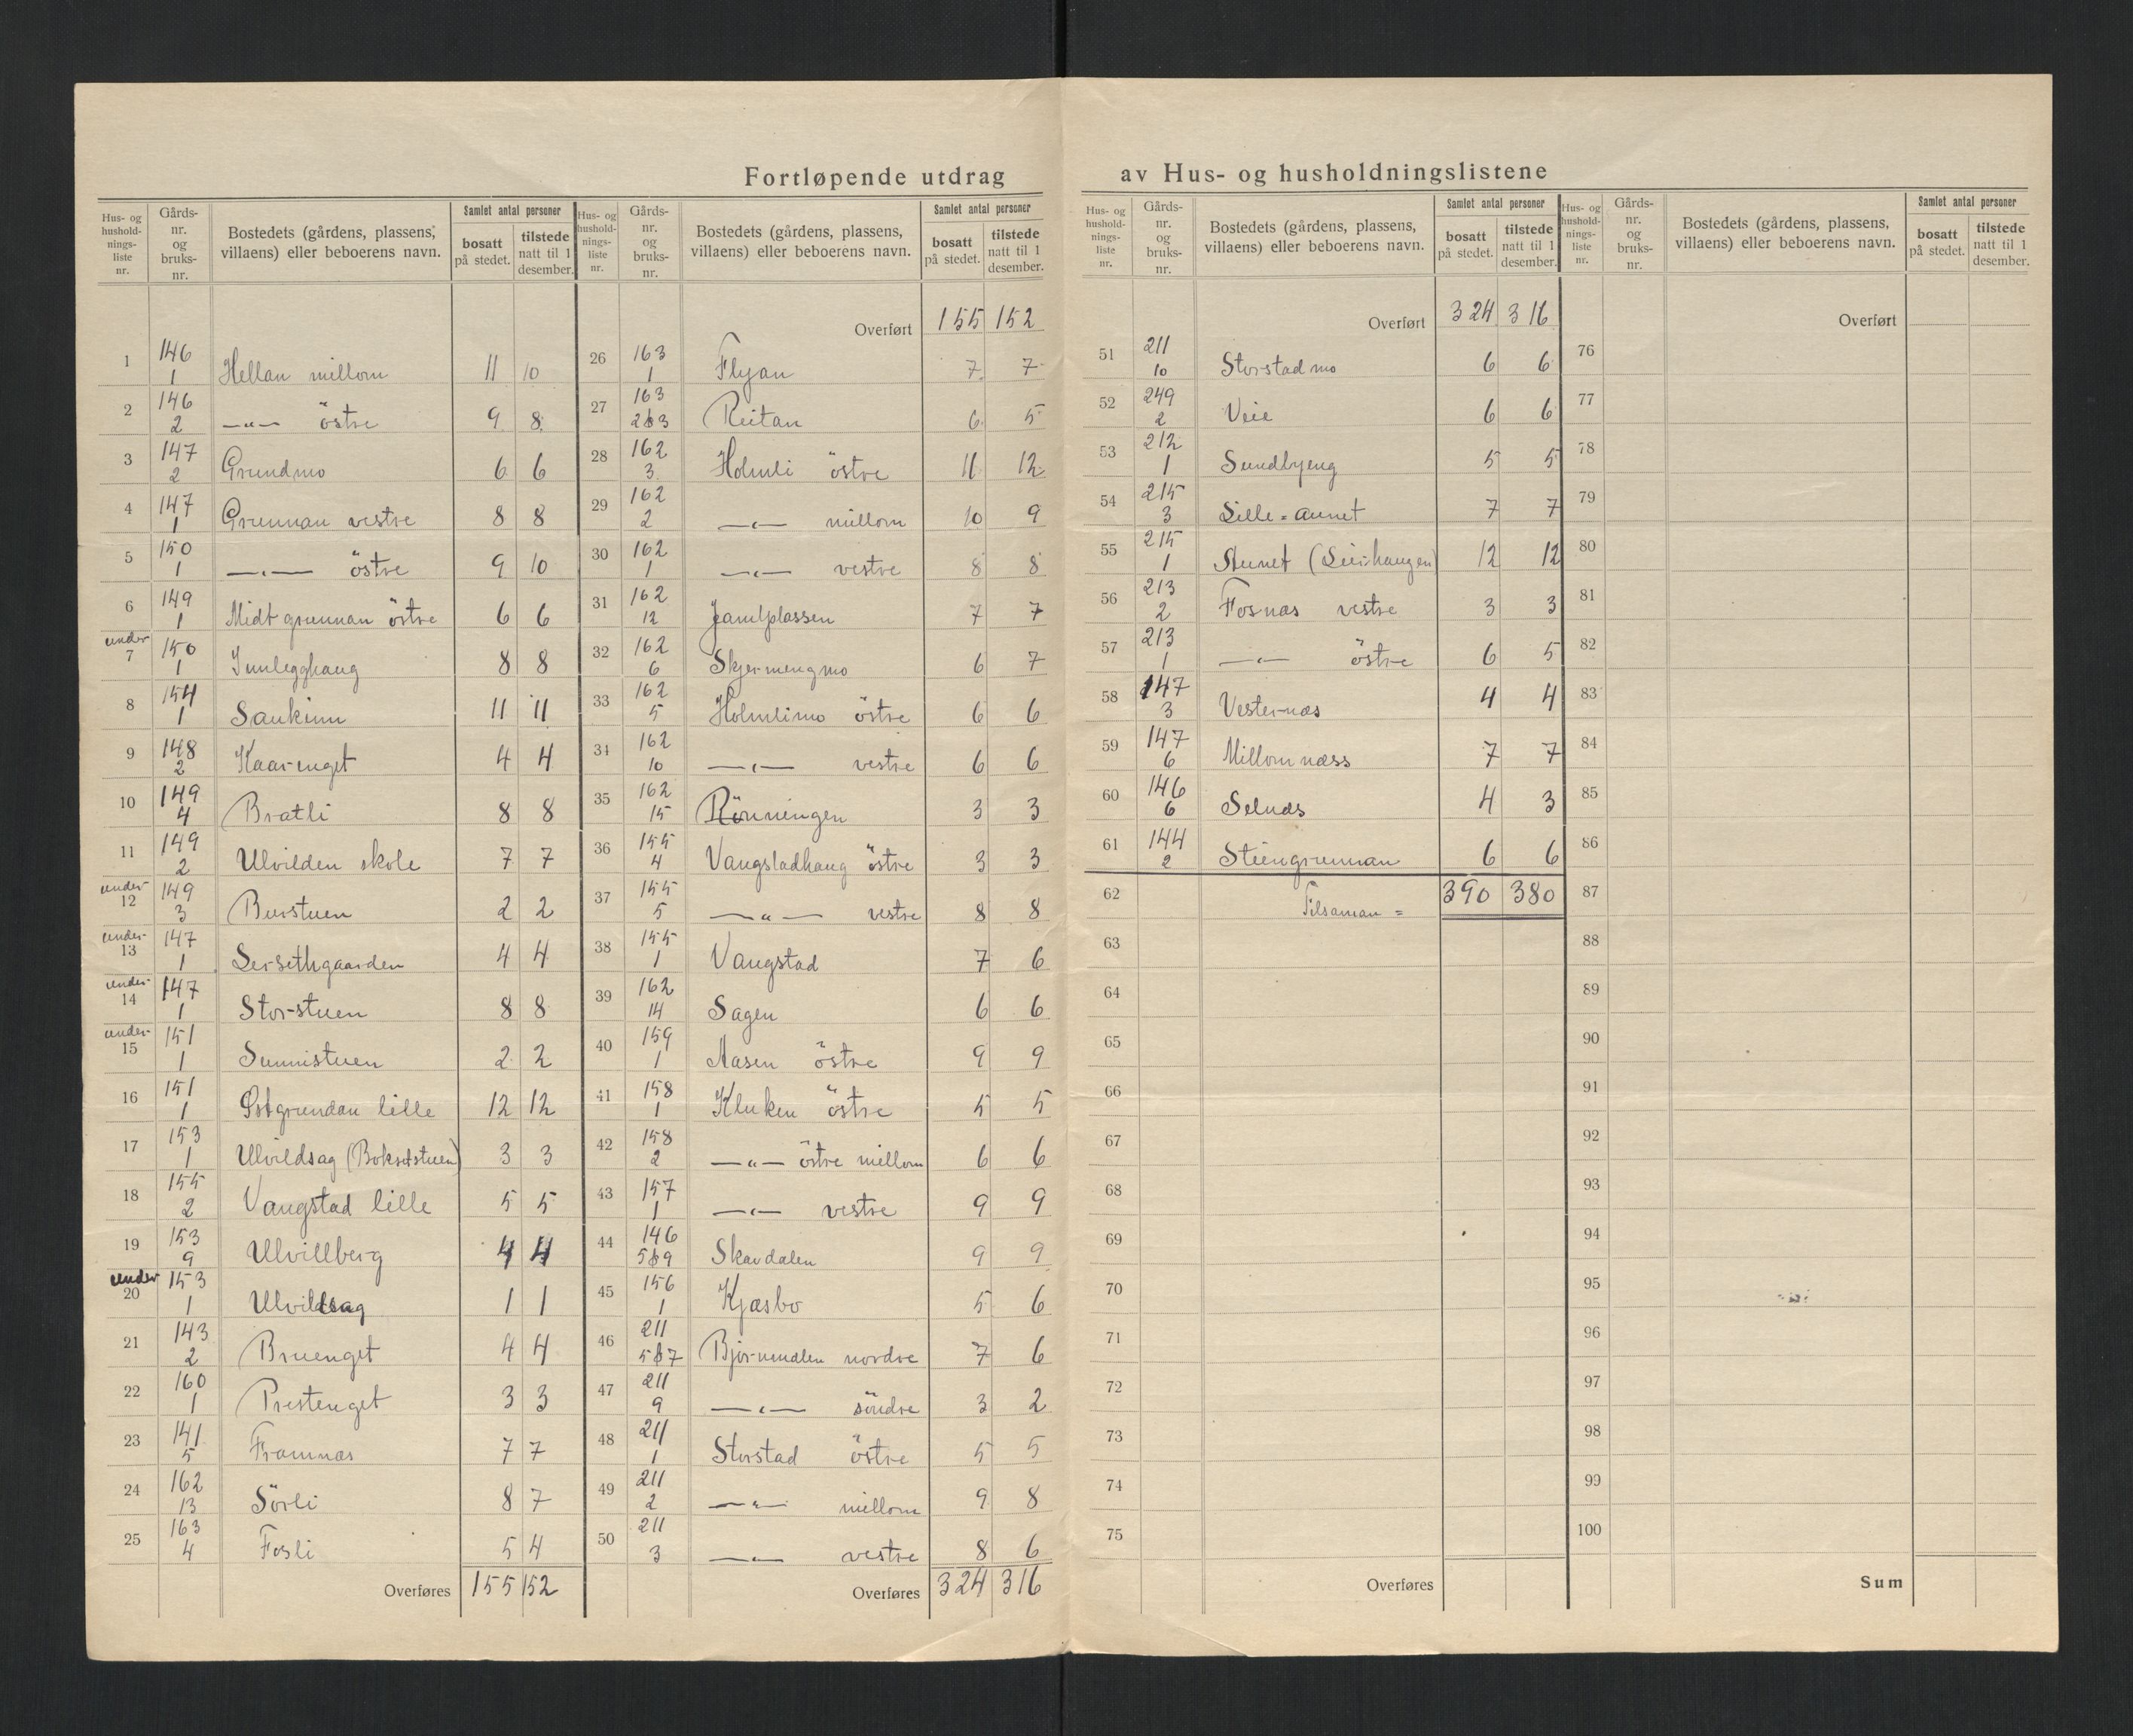 Fortløpende utdrag av Hus- og husholdningslistene
Hus- og hushold-nings-liste nr. | Gårds-nr. og bruks-nr. | Bostedets (gårdens, plassens, villaens) eller beboerens navn. | Samlet antal personer | bosatt på stedet. | tilstede natt til 1 desember.
1 146 1 Hellan millom 11 10
2 146 2 —"— östre 9 8
3 147 2 Grundmo 6 6
4 147 1 Grunnan vestre 8 8
5 150 1 —"— östre 9 10
6 149 1 Midtgrunnan östre 6 6
under 7 150 1 Innlegghaug 8 8
8 154 1 Saukinn 11 11
9 148 2 Kaarenget 4 4
10 149 4 Bratli 8 8
11 149 2 Ulvilden skole 7 7
under 12 149 3 Burstuen 2 2
under 13 147 1 Lersethgaarden 4 4
under 14 147 1 Storstuen 8 8
under 15 151 1 Sunnistuen 2 2
16 151 1 Östgrundan lille 12 12
17 153 1 Ulvildsag (Boksetstuen) 3 3
18 155 2 Vangstad lille 5 5
19 153 9 Ulvillberg 4 4
under 20 153 1 Ulvildsag 1 1
21 143 2 Bruenget 4 4
22 160 1 Prestenget 3 3
23 141 5 Framnæs 7 7
24 162 13 Sörli 8 7
25 163 4 Fosli 5 4
Overføres 155 152
Hus- og hushold-nings-liste nr. | Gårds-nr. og bruks-nr. | Bostedets (gårdens, plassens, villaens) eller beboerens navn. | Samlet antal personer | bosatt på stedet. | tilstede natt til 1 desember.
Overført 155 152
26 163 1 Flyan 7 7
27 163 2&3 Reitan 6 5
28 162 3 Holmli östre 11 12
29 162 2 —"— millom 10 9
30 162 1 —"— vestre 8 8
31 162 12 Jamtplassen 7 7
32 162 6 Skjermengmo 6 7
33 162 5 Holmlimo östre 6 6
34 162 10 —"— vestre 6 6
35 162 15 Rönningen 3 3
36 155 4 Vangstadhaug östre 3 3
37 155 5 —"— vestre 8 8
38 155 1 Vangstad 7 6
39 162 14 Sagen 6 6
40 159 1 Aasen östre 9 9
41 158 1 Kluken östre 5 5
42 158 2 —"— östre millom 6 6
43 157 1 —"— vestre 9 9
44 146 5&9 Skavdalen 9 9
45 156 1 Kjæsbo 5 6
46 211 5&7 Björnundalen nordre 7 6
47 211 9 —"— söndre 3 2
48 211 1 Storstad östre 5 5
49 211 2 —"— millom 9 8
50 211 3 —"— vestre 8 6
Overføres 324 316
Hus- og hushold-nings-liste nr. | Gårds-nr. og bruks-nr. | Bostedets (gårdens, plassens, villaens) eller beboerens navn. | Samlet antal personer | bosatt på stedet. | tilstede natt til 1 desember.
Overført 324 316
51 211 10 Storstadmo 6 6
52 249 2 Veie 6 6
53 212 1 Sundbyeng 5 5
54 215 3 Lille=aunet 7 7
55 215 1 Aunet (Leirhaugen) 12 12
56 213 2 Fosnæs vestre 3 3
57 213 1 —"— östre 6 5
58 147 3 Vesternæs 4 4
59 147 6 Millomnæss 7 7
60 146 6 Selnæs 4 3
61 144 2 Steingrunnan 6 6
62 Tilsaman = 390 380
63
64
65
66
67
68
69
70
71
72
73
74
75
Overføres
Hus- og hushold-nings-liste nr. | Gårds-nr. og bruks-nr. | Bostedets (gårdens, plassens, villaens) eller beboerens navn. | Samlet antal personer | bosatt på stedet. | tilstede natt til 1 desember.
Overført
76
77
78
79
80
81
82
83
84
85
86
87
88
89
90
91
92
93
94
95
96
97
98
99
100
Sum